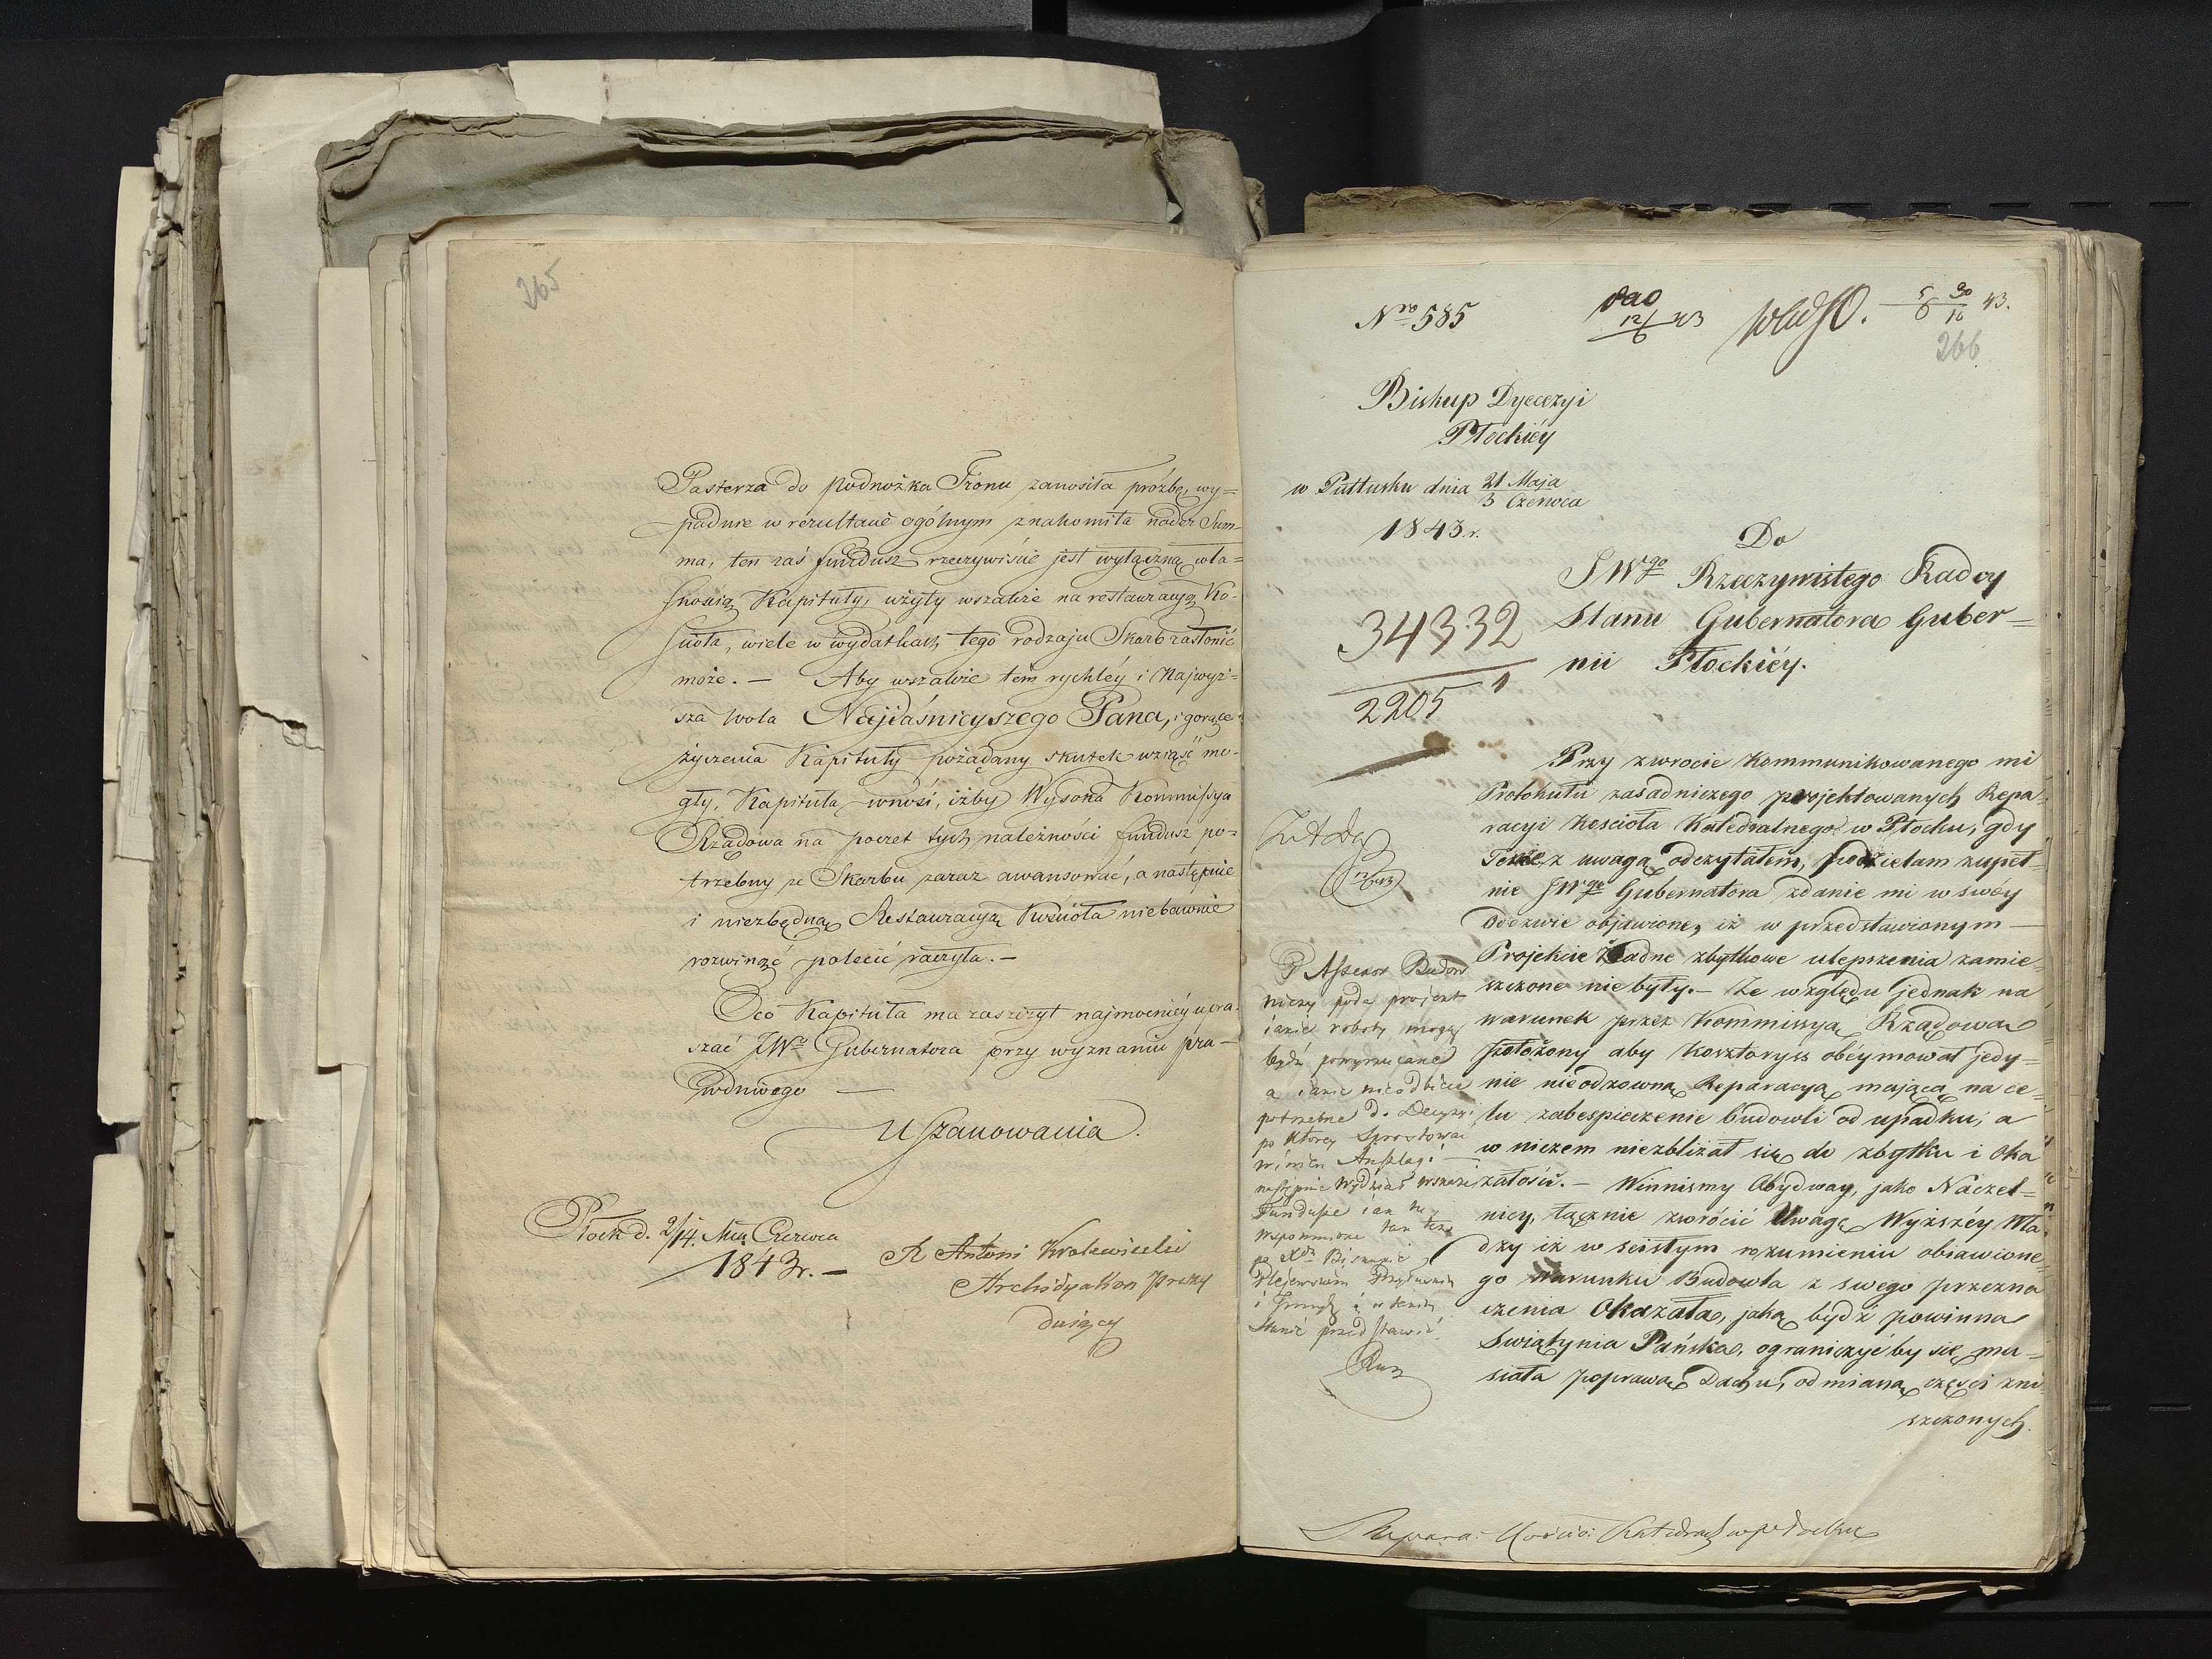 265
Pasterza do podnóżka Tronu zanosiła prózbę, wy=
padnie w rezultacie ogólnym znakomita nader Sum-
ma, ten zaś fundusz rzeczywiście jest wyłączną wła=
snością Kapituły, użyty wszakże na restauracyą Ko-
ścioła, wiele w wydatkach tego rodzaju Skarb zasłonić
może. — Aby wszakże tém rychléy i Najwyż=
sza wola Najjaśnieyszego Pana, i gorące
życzenia Kapituły pożądany skutek wziąść mo-
gły, Kapituła wnosi, iżby Wysoka Kommissya
Rządowa na poczet tych należności fundusz po=
trzebny ze Skarbu zaraz awansować, a następnie
i niezbędną Restauracyą Kościoła niebawnie
rozwinąć polecić raczyła. —
Oco Kapituła ma zaszczyt najmocniéy upra-
szać JWo Gubernatora przy wyznaniu pra-
wdziwego —
Uszanowania.
Płock d. 2/14. Mca Czerwca
1843r. —
X Antoni Krolewiecki
Archidyakon Prezy
dujący
Nro 585
12/6 43
5/6 30/16 43.
266
Biskup Dyecezyi
Płockiéy
w Pułtusku dnia 21 Maja
3 Czerwca
1843 r.
Do
JWgo Rzeczywistego Radcy
Stanu Gubernatora Guber=
nii Płockiéy.
34332
2205
Przy zwrocie Kommunikowanego mi
Protokułu zasadniczego projektowanych Repa=
racyi Kościoła Katedralnego w Płocku, gdy
Tenże z uwagą odczytałem, podzielam zupeł=
nie JWgo Gubernatora zdanie mi w swéy
Odezwie objawione, iż w przedstawionym —
Projekcie żadne zbytkowe ulepszenia zamie=
szczone nie były. — Ze względu jednak na
warunek przez Kommissyą Rządową
położony aby Kosztoryss obéymował jedy=
nie nieodzowną Reparacyą mającą na ce=
lu zabespieczenie budowli od upadku, a
w niczem niezbliżał się do zbytku i Oka
załości. — Winnismy Obydway, jako Naczel=
nicy, łącznie zwrócić Uwagę Wyższéy Wła=
dzy iż w ścisłym rozumieniu obiawione=
go Warunku Budowla z swego przezna
czenia Okazała, jaką bydź powinna
Swiątynia Pańska, ograniczyćby się mu=
siała poprawą Dachu, odmianą części zni
szczonych
12/6 43
P Assessor Budow
niczy poda projekt
iakie roboty mogą
bydź powyrzucane
a iakie nieodbicie
potrzebne do Decyzyi
po którey Sprostować
winien Anszlagi
następnie Wydział wskaże
Fundusze iak tu
wspomnione tak też
po Xdzu Biskupie
i
Stanie przedstawić.
Repara: Kościo: Katedral w Płocku